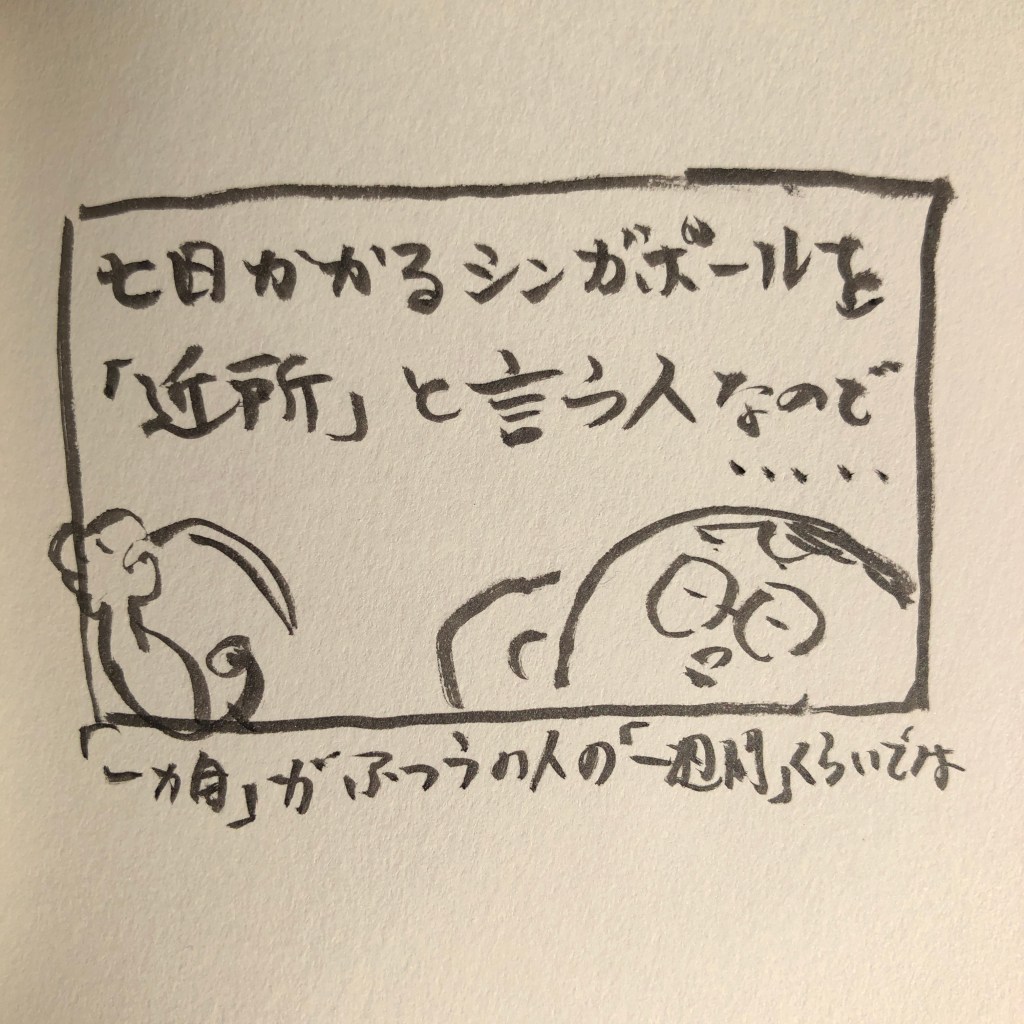 七日かかるシンガポールを
「近所」と言う人なので
・・・・・
「一カ月」がふつうの人の「一週間」くらいでは